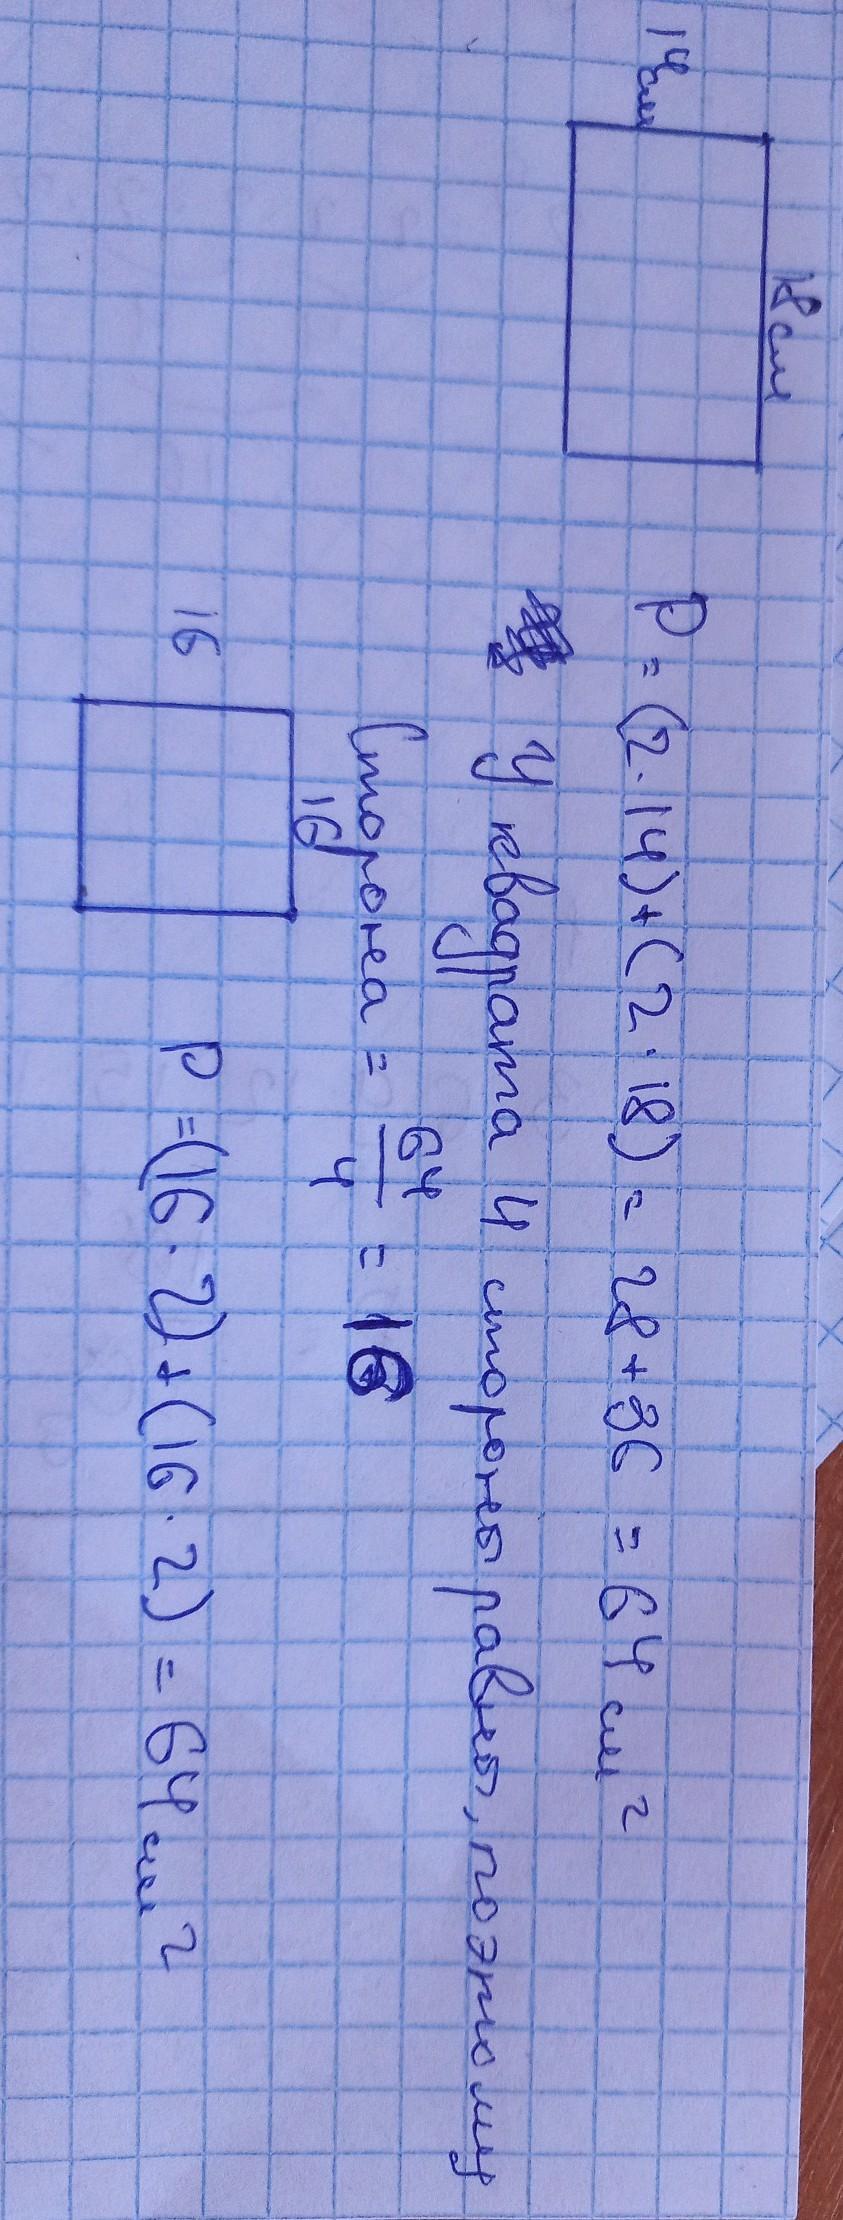 18 см
14 см
P = (2·14)+(2·18) = 28+36 = 64 см²
У квадрата 4 стороны равны, поэтому
Сторона = 64/4 = 16
16
16
P =(16·2)+(16·2) = 64 см²